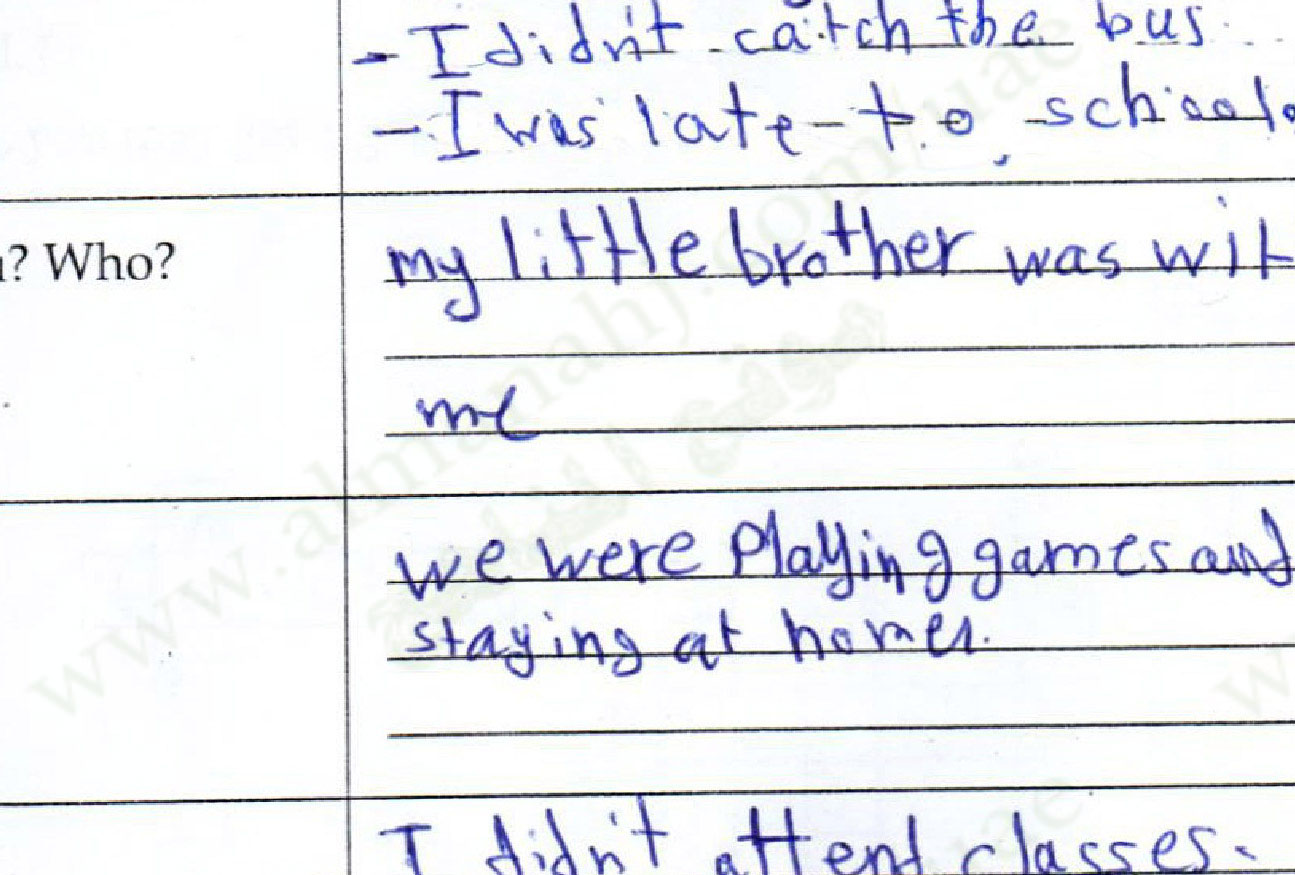 - I didn't catch the bus.
- I was late to school.
? Who?
my little brother was wit
me
we were Playing games and
staying at home.
I didn't attend classes.
www.almanahj.com/uae